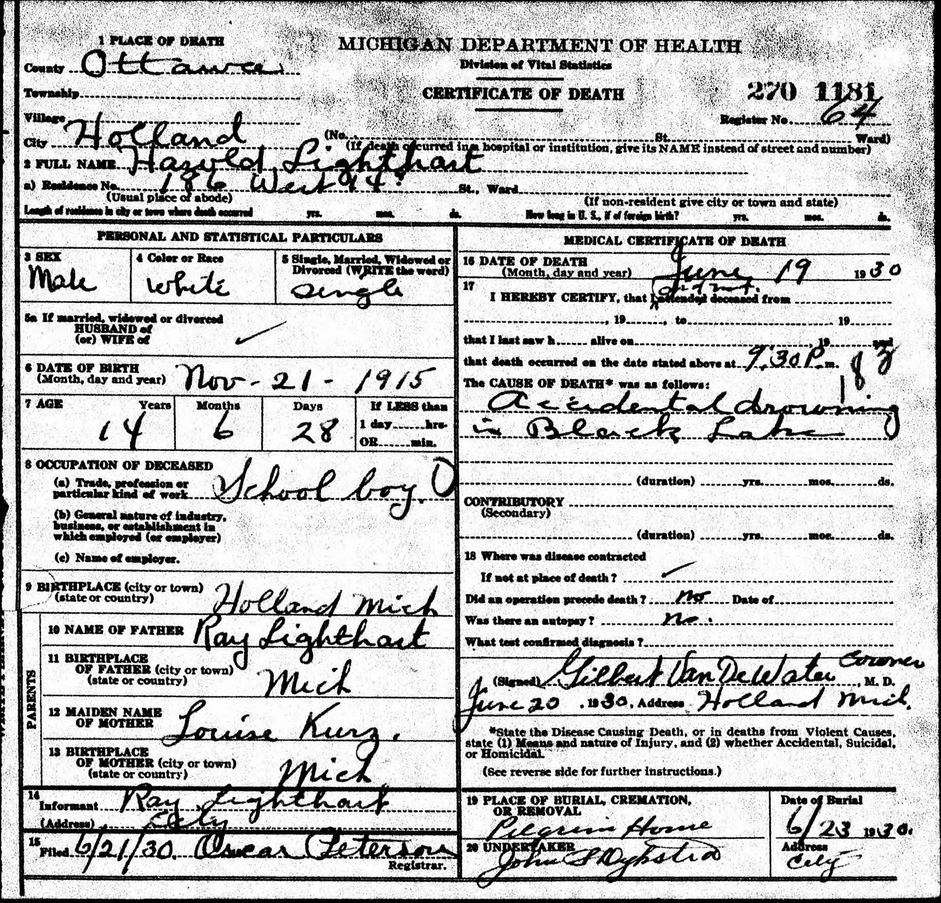 1 PLACE OF DEATH
County Ottawa
Township
Village
City Holland
MICHIGAN DEPARTMENT OF HEALTH
Division of Vital Statistics
CERTIFICATE OF DEATH
270 1181
Register No. 64
(No. St. Ward)
(If death occurred in a hospital or institution, give its NAME instead of street and number)
2 FULL NAME Harold Lighthart
a) Residence No. 186 West 14 St., Ward
(Usual place of abode)
(If non-resident give city or town and state)
Length of residence in city or town where death occurred yrs. mos. ds.
How long in U. S., if of foreign birth? yrs. mos. ds.
PERSONAL AND STATISTICAL PARTICULARS
3 SEX
Male
4 Color or Race
White
5 Single, Married, Widowed or
Divorced (WRITE the word)
Single
5a If married, widowed or divorced
HUSBAND of
(or) WIFE of ✓
6 DATE OF BIRTH
(Month, day and year) Nov - 21 - 1915
7 AGE Years Months Days If LESS than
14 6 28 1 day hrs.
OR min.
8 OCCUPATION OF DECEASED
(a) Trade, profession or
particular kind of work School boy
(b) General nature of industry,
business, or establishment in
which employed (or employer)
(c) Name of employer.
9 BIRTHPLACE (city or town)
(state or country) Holland Mich
PARENTS
10 NAME OF FATHER Ray Lighthart
11 BIRTHPLACE
OF FATHER (city or town)
(state or country) Mich
12 MAIDEN NAME
OF MOTHER Louise Kurz.
13 BIRTHPLACE
OF MOTHER (city or town)
(state or country) Mich
14
Informant Ray Lighthart
(Address) City
15
Filed 6/21/30. Oscar Peterson
Registrar.
MEDICAL CERTIFICATE OF DEATH
16 DATE OF DEATH
(Month, day and year) June 19 1930
17
did not
I HEREBY CERTIFY, that I attended deceased from
, 19 , to 19
that I last saw h alive on 19 and
that death occurred on the date stated above at 9:30 P. m.
The CAUSE OF DEATH* was as follows:
Accidental drowning
in Black Lake
(duration) yrs. mos. ds.
CONTRIBUTORY
(Secondary)
(duration) yrs. mos. ds.
18 Where was disease contracted
If not at place of death? ✓
Did an operation precede death? no Date of
Was there an autopsy? no.
What test confirmed diagnosis?
(Signed) Gilbert Van De Water Coroner M. D.
June 20 . 1930, Address Holland Mich.
*State the Disease Causing Death, or in deaths from Violent Causes,
state (1) Means and nature of Injury, and (2) whether Accidental, Suicidal,
or Homicidal.
(See reverse side for further instructions.)
19 PLACE OF BURIAL, CREMATION,
OR REMOVAL
Pilgrim Home
Date of Burial
6/23 1930.
20 UNDERTAKER
John S Dykstra
Address
City